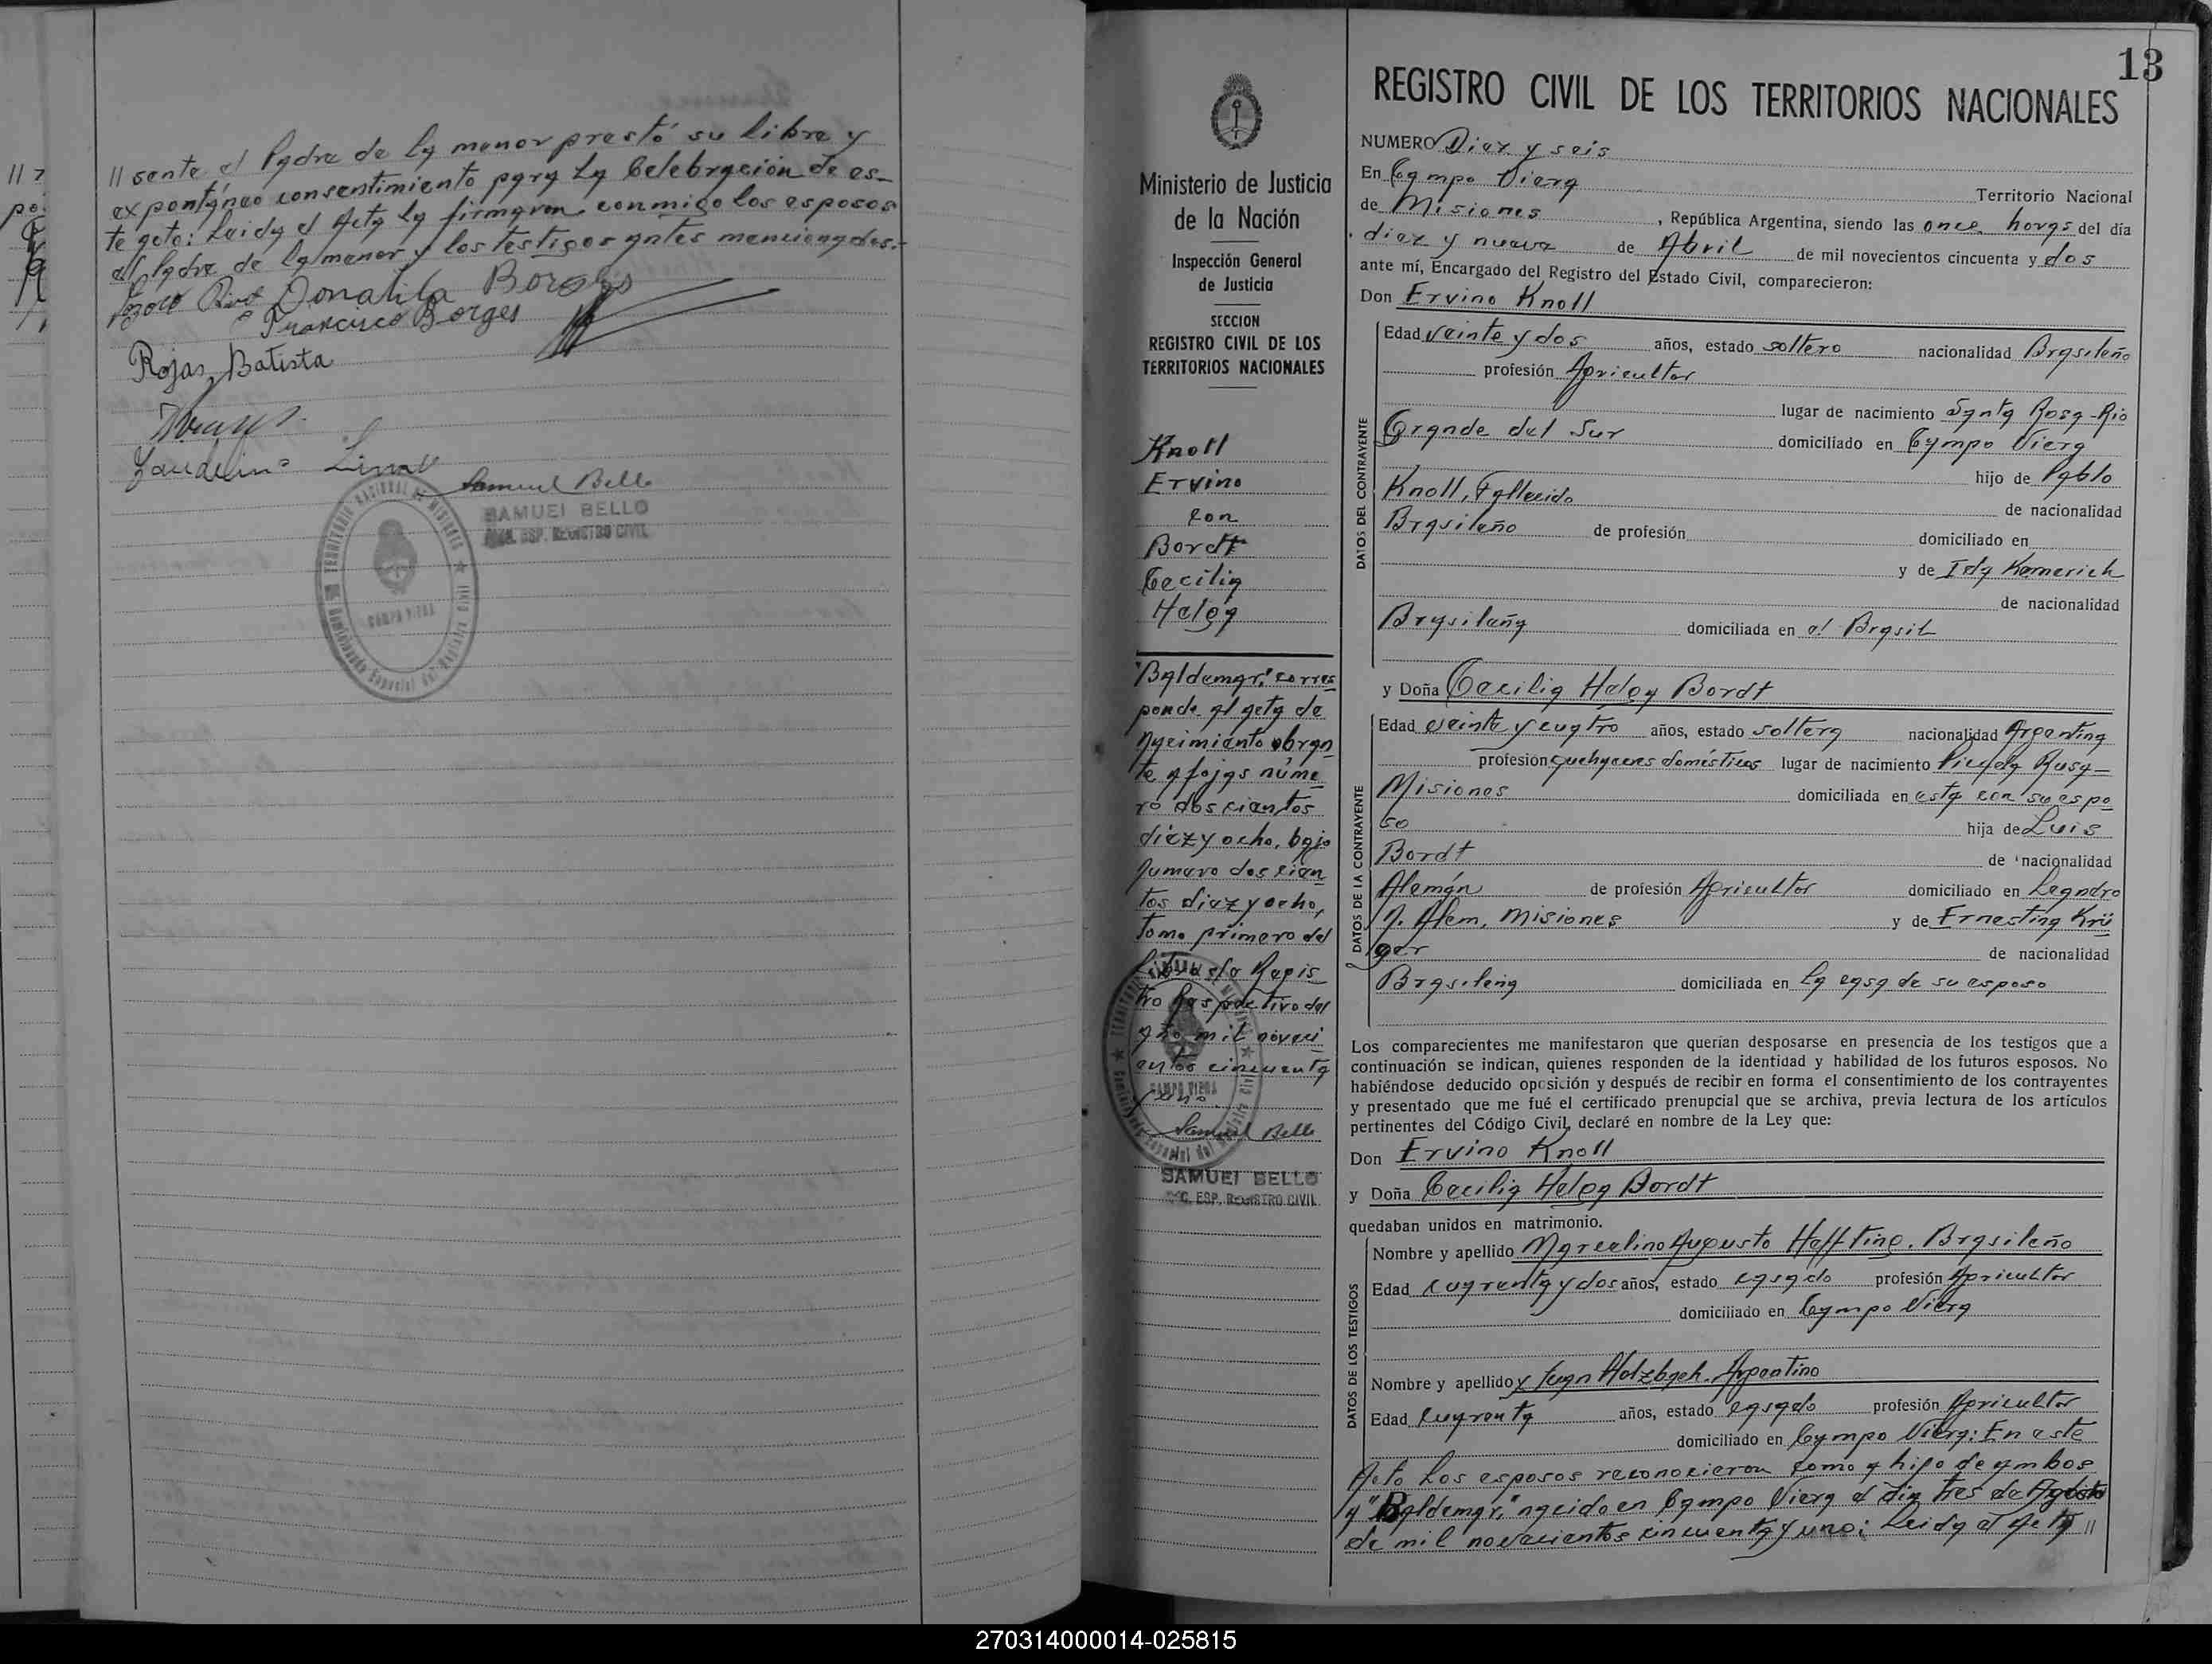 // sente el Padre de la menor prestó su libre y
expontáneo consentimiento para la Celebración de es-
te acto: Leida el Acta la firmaron conmigo los esposos
el Padre de la menor y los testigos antes mencionados.-
Donatila Borges
Francisco Borges
Rojas Batista
Lima
Samuel Bello
SAMUEL BELLO
ESP. REGISTRO CIVIL
TERRITORIO NACIONAL DE MISIONES
CAMPO VIERA
13
Ministerio de Justicia
de la Nación
Inspección General
de Justicia
SECCION
REGISTRO CIVIL DE LOS
TERRITORIOS NACIONALES
Knoll
Ervino
con
Bordt
Cecilia
Heleg
"Baldemar," corres
ponde al acta de
nacimiento obran
te a fojas núme
ro dos cientos
diez y ocho, bajo
numero dos cien
tos diez y ocho,
tomo primero del
Libro de Regis
tro Respectivo del
año mil noveci
entos cincuenta
y uno.
Samuel Bello
SAMUEL BELLO
ESP. REGISTRO CIVIL
REGISTRO CIVIL DE LOS TERRITORIOS NACIONALES
NUMERO Diez y seis
En Campo Viera Territorio Nacional
de Misiones, República Argentina, siendo las once horas del día
diez y nueve de Abril de mil novecientos cincuenta y dos
ante mí, Encargado del Registro del Estado Civil, comparecieron:
Don Ervino Knoll
DATOS DEL CONTRAYENTE
Edad veinte y dos años, estado soltero nacionalidad Brasileño
profesión Agricultor
lugar de nacimiento Santa Rosa-Rio
Grande del Sur domiciliado en Campo Viera
hijo de Pablo
Knoll, Fallecido de nacionalidad
Brasileño de profesión domiciliado en
y de Ida Kemerich
de nacionalidad
Brasileña domiciliada en el Brasil
y Doña Cecilia Heleg Bordt
DATOS DE LA CONTRAYENTE
Edad veinte y cuatro años, estado soltera nacionalidad Argentina
profesión quehaceres domésticos lugar de nacimiento Picada Rusa-
Misiones domiciliada en esta con su espo
so hija de Luis
Bordt de nacionalidad
Alemán de profesión Agricultor domiciliado en Leandro
N. Alem, Misiones y de Ernestina Krü
ger de nacionalidad
Brasileña domiciliada en La casa de su esposo
Los comparecientes me manifestaron que querían desposarse en presencia de los testigos que a
continuación se indican, quienes responden de la identidad y habilidad de los futuros esposos. No
habiéndose deducido oposición y después de recibir en forma el consentimiento de los contrayentes
y presentado que me fué el certificado prenupcial que se archiva, previa lectura de los artículos
pertinentes del Código Civil, declaré en nombre de la Ley que:
Don Ervino Knoll
y Doña Cecilia Heleg Bordt
quedaban unidos en matrimonio.
DATOS DE LOS TESTIGOS
Nombre y apellido Marcelino Augusto Haffting. Brasileño
Edad cuarenta y dos años, estado casado profesión Agricultor
domiciliado en Campo Viera
Nombre y apellido y Juan Holzbach. Argentino
Edad cuarenta años, estado casado profesión Agricultor
domiciliado en Campo Viera: En este
Acto Los esposos reconocieron como a hijo de ambos
a "Baldemar," nacido en Campo Viera el dia tres de Agosto
de mil novecientos cincuenta y uno: Leida el Acta //
270314000014-025815